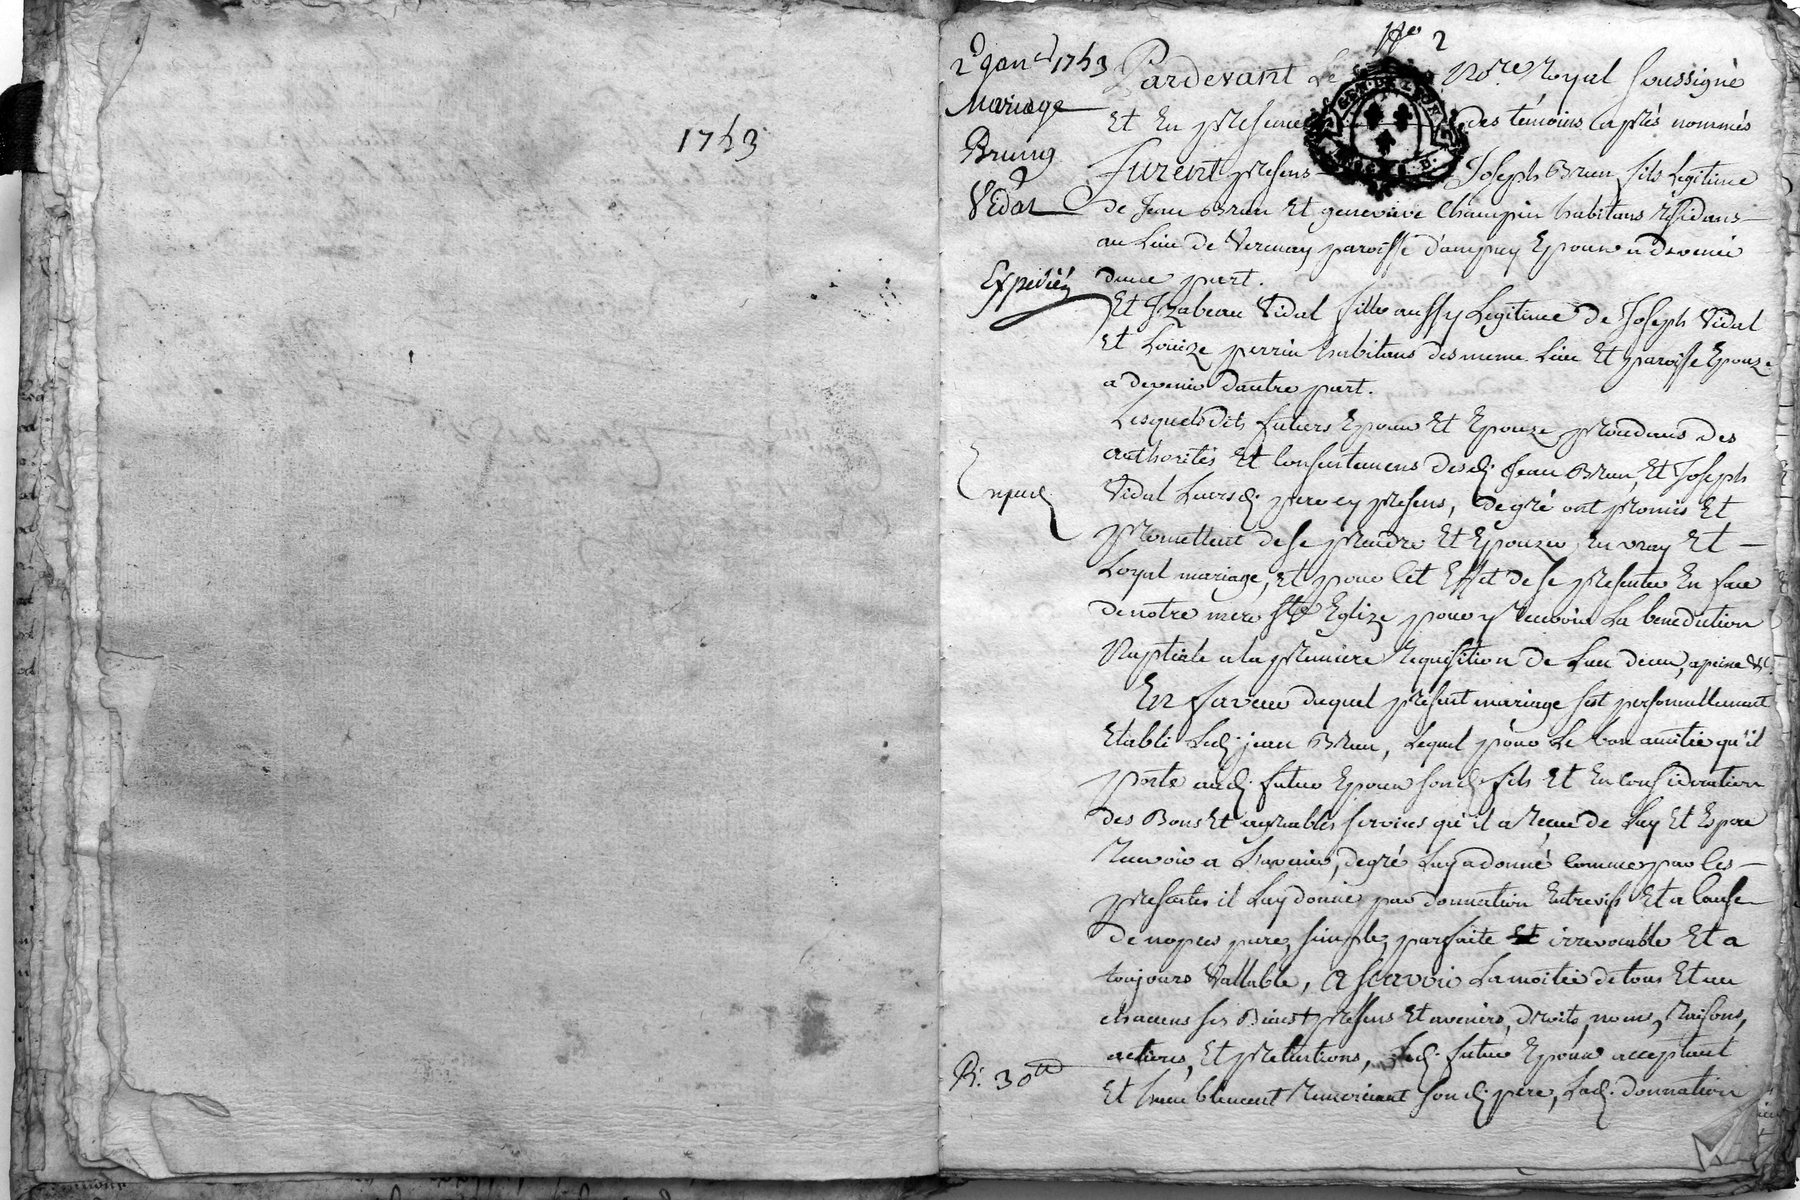 1753
pro 2
2 janer 1753
Mariage
Brun
Vidal
Expedié
R. 30tt
Pardevant Le Nore. Royal soussigné
Et En presence des témoins cy aprés nommés
furent presens Joseph Brun fils legitime
de Jean Brun Et geneviéve Champin habitans residans
au Lieu de Verenay paroisse d'ampuy Epoux a devenir
dune part.
Et Izabeau Vidal fille aussy Legitime de Joseph Vidal
Et Loüize perrin habitans des meme Lieu Et paroisse Epouze
a devenir dautre part.
Lesquels dits futurs Epoux Et Epouze procedans des
authorités Et Consentemens desd. Jean Brun, Et Joseph
Vidal Leursd. pere cy presens, de gré ont promis Et
promettent de se prendre Et Epouzer En vray Et
Loyal mariage, Et pour Cet Effet de se presenter En face
de notre mere Ste Eglize pour y recevoir La benediction
Nuptiale a la premiere requisition de Lun deux, a peine &c.
En faveur duquel present mariage sest personnellement
Etabli Led. jean Brun, Lequel pour Le bon amitié qu'il
porte aud. futur Epoux sond. fils Et En consideration
des Bons Et agreables services qu'il a reçeu de Luy Et Espere
recevoir a Lavenir, de gré Luy a donné comme par Ces
presentes il Luy donne par donnation Entrevifs Et a Cause
de nopces pure, simple, parfaite irrevocable Et a
toujours Vallable, a scavoir La moitié de tous Et un
chacuns ses Biens presens Et avenirs, droits, noms, raisons,
actions, Et pretentions, Led. futur Epoux acceptant
Et humblement remerciant sond. pere, Lad. donnation